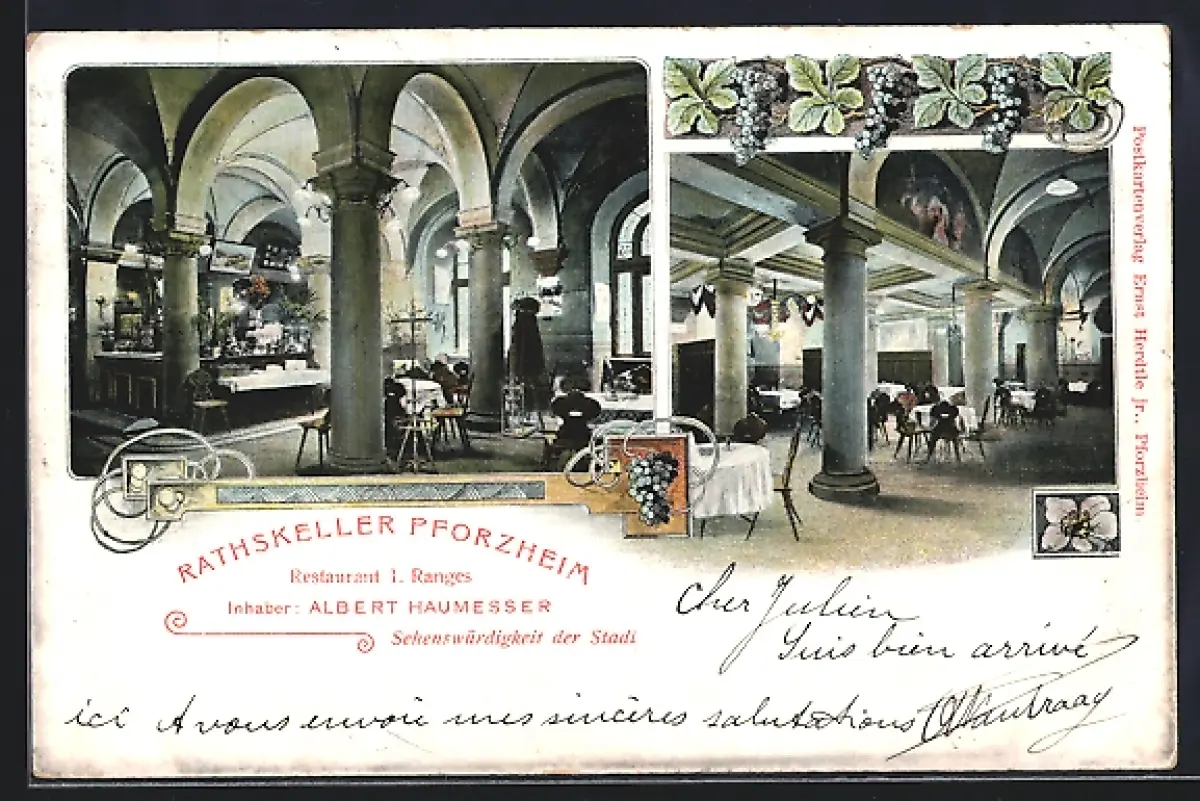 RATHSKELLER PFORZHEIM
Restaurant i. Ranges
Inhaber: ALBERT HAUMESSER
Sehenswürdigkeit der Stadt
Postkartenverlag Ernst Herdtle jr., Pforzheim.
Cher Julien
Suis bien arrivé
ici A vous envoie mes sincères salutations